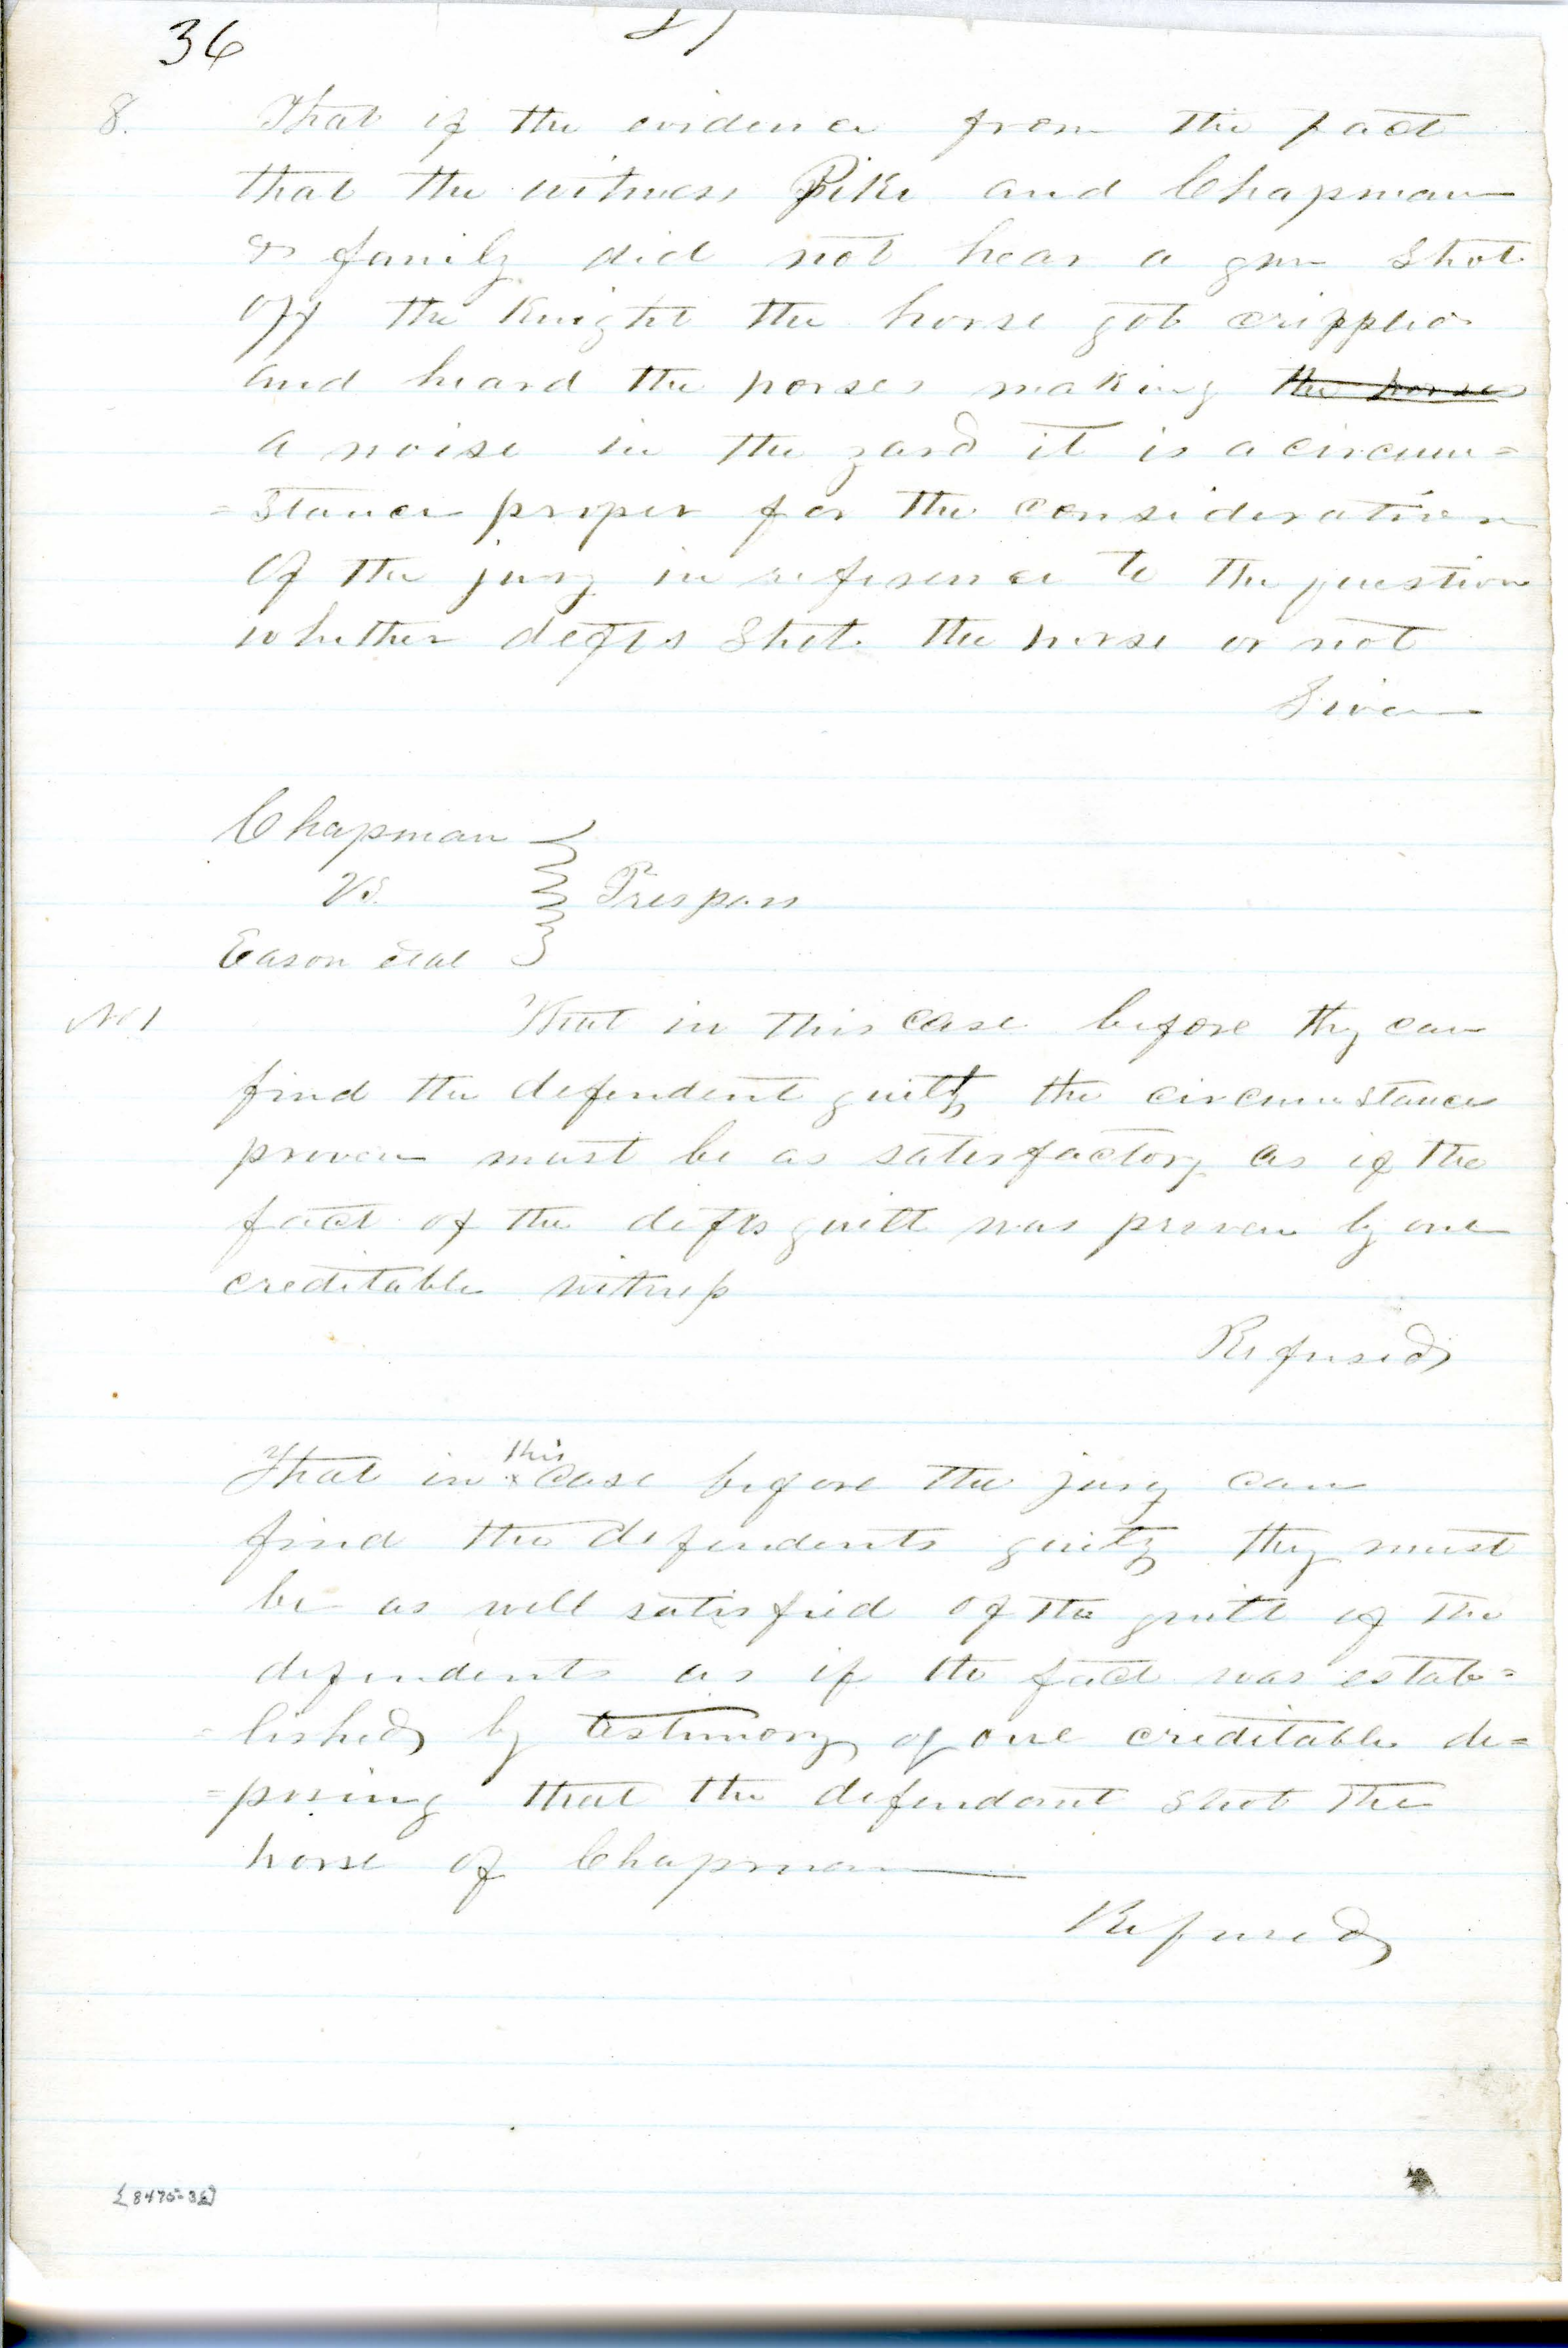 36
8. That if the evidence from the fact
that the witness Pike and Chapman
& family did not hear a gun shot
off the Knight the horse got crippled
and heard the horses making the horses
a noise in the yard it is a circum=
=stance proper for the consideration
of the jury in reference to the question
whether defts shot the horse or not
Given
Chapman
vs.
Trespass
Eason etal
No 1
That in this case before they can
find the defendent guilty the circumstances
proven must be as satisfactory as if the
fact of the defts guilt was proven by one
creditable witness
Refused
this
That in x case before the jury can
find the defendents guilty they must
be as well satisfied of the guilt of the
defendents as if the fact was estab=
=lished by testimony of one creditable de=
=posing that the defendant shot the
horse of Chapman
Refused
[8475-36]